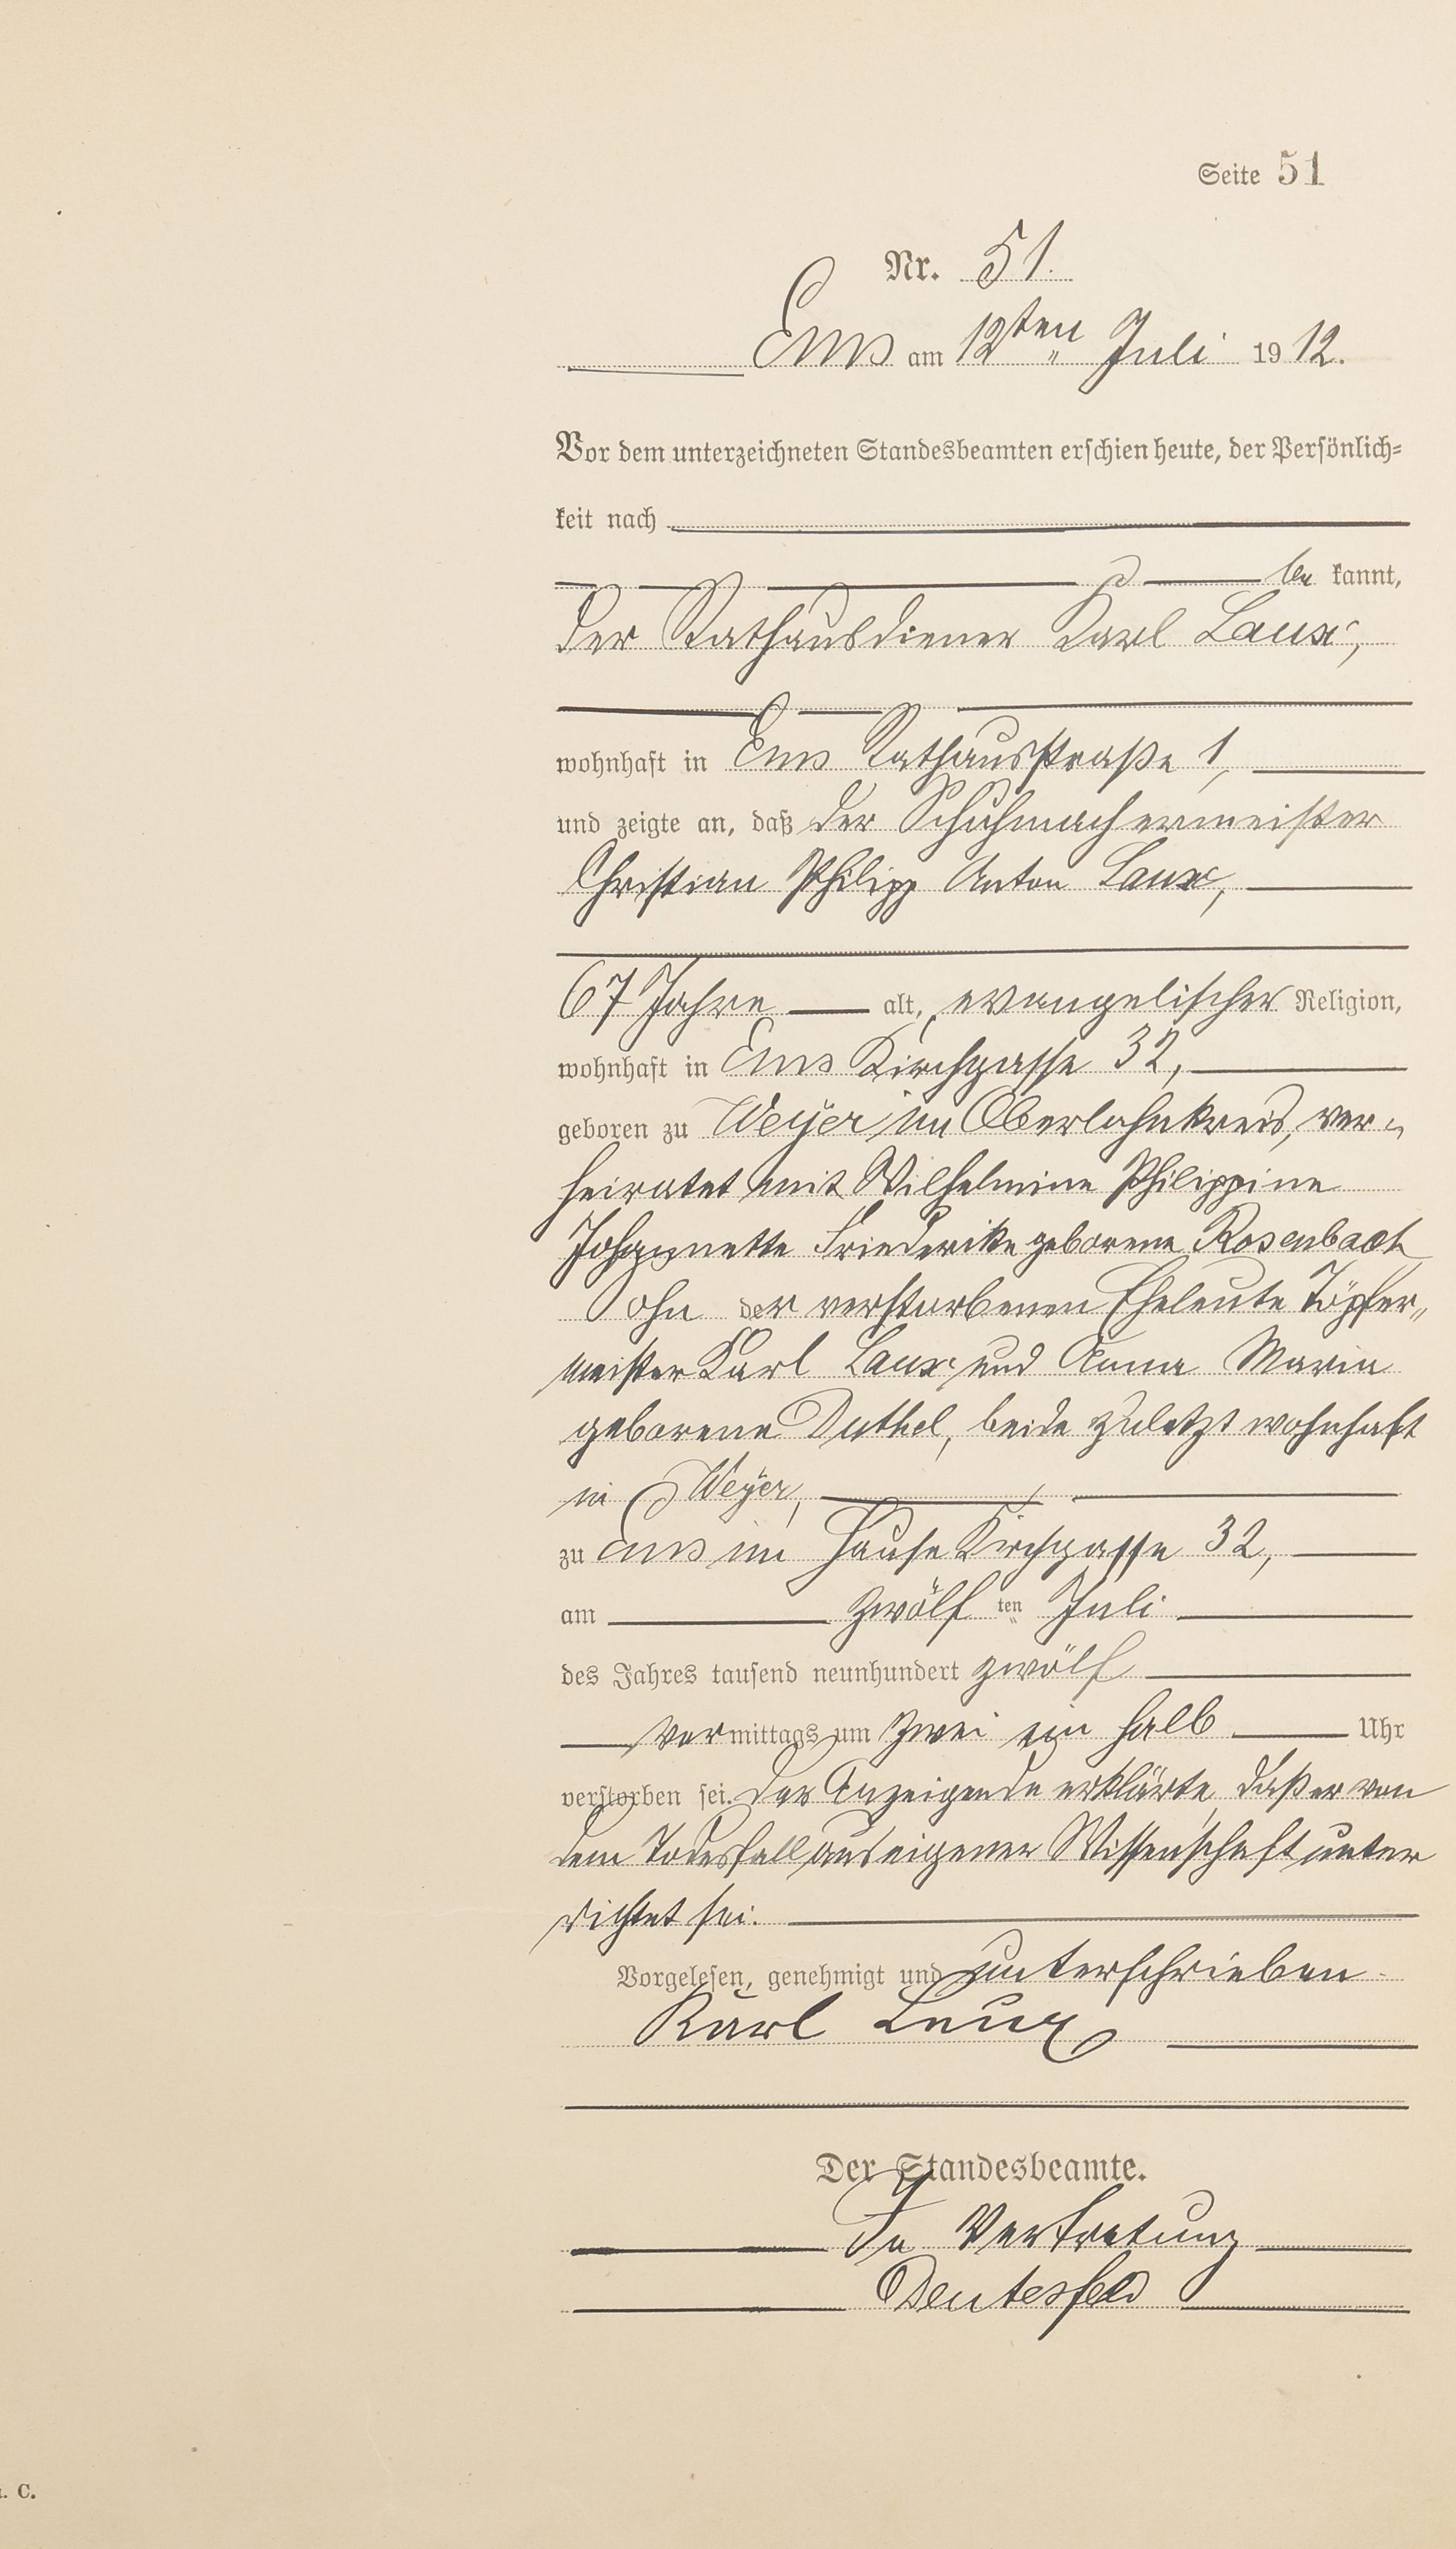 Seite 51
Nr. 51.
Ems am 12ten Juli 1912.
Vor dem unterzeichneten Standesbeamten erschien heute, der Persönlich=
keit nach
be kannt,
der Rathausdiener Karl Laux,
wohnhaft in Ems Rathausstraße 1,
und zeigte an, daß der Schuhmachermeister
Christian Philipp Anton Laux,
67 Jahre alt, evangelischer Religion,
wohnhaft in Ems Kirchgasse 32,
geboren zu Weyer im Oberlahnkreis, ver=
heiratet mit Wilhelmine Philippine
Johannette Friederike geborene Rosenbach
Sohn der verstorbenen Eheleute Töpfer=
meister Karl Laux und Anna Maria
geborene Duthel, beide zuletzt wohnhaft
in Weyer,
zu Ems im Hause Kirchgasse 32,
am zwölf ten Juli
des Jahres tausend neunhundert zwölf
Vor mittags um zwei ein halb Uhr
verstorben sei. Der Anzeigende erklärte, daß er von
dem Todesfall aus eigener Wissenschaft unter
richtet sei.
Vorgelesen, genehmigt und unterschrieben
Karl Laux
Der Standesbeamte.
In Vertretung
Deutesfeld
. C.